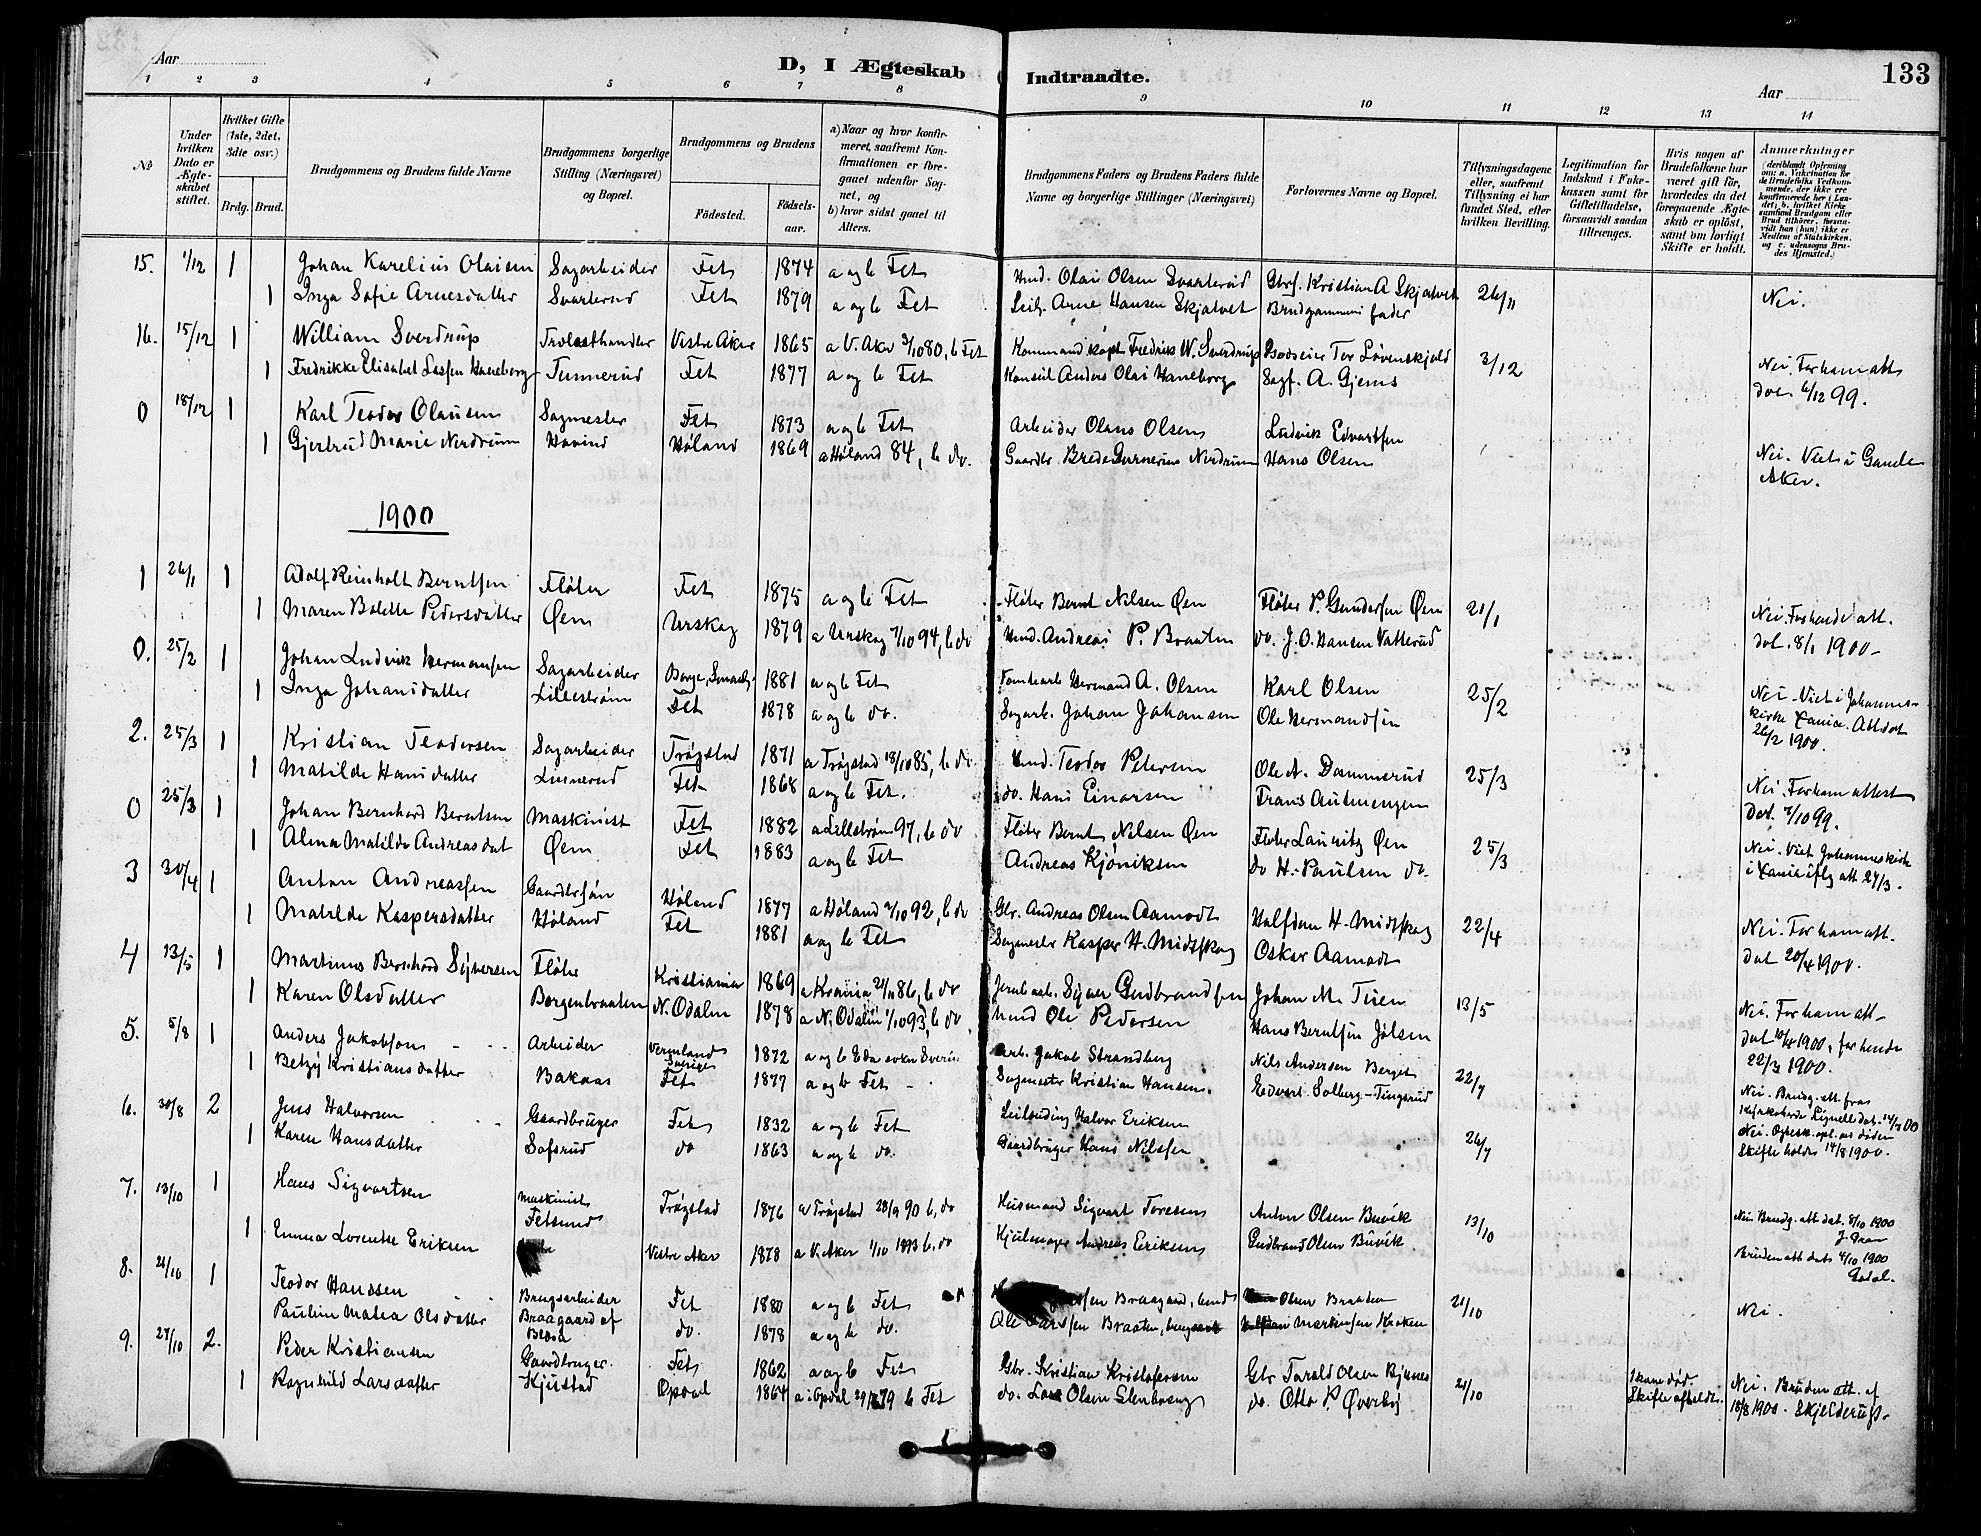 133
Aar
D, I Ægteskab Indtraadte.
Aar
1 2 3 4 5 6 7 8 9 10 11 12 13 14
No
Under hvilken Dato er Ægteskabet stiftet.
Hvilket Gifte (1ste, 2det, 3die osv.)
Brdg. Brud.
Brudgommens og Brudens fulde Navne
Brudgommens borgerlige Stilling (Næringsvei) og Bopæl.
Brudgommens og Brudens
Fødested.
Fødselsaar.
a) Naar og hvor konfirmeret, saafremt Konfirmationen er foregaaet udenfor Sognet, og
b) hvor sidst gaaet til Alters.
Brudgommens Faders og Brudens Faders fulde Navne og borgerlige Stillinger (Næringsvei)
Forlovernes Navne og Bopæl.
Tillysningsdagene eller, saafremt Tillysning ei har fundet Sted, efter hvilken Bevilling.
Legitimation for Indskud i Enkekassen samt for Giftetilladelse, forsaavidt saadan tiltrænges.
Hvis nogen af Brudefolkene har været gift før, hvorledes da det foregaaende Ægteskab er opløst, samt om lovligt Skifte er holdt.
Anmærkninger (deriblandt Oplysning om: a. Vakcination for de Brudefolks Vedkommende, der ikke ere konfirmerede her i Landet; b. hvilket Kirkesamfund Brudgom eller Brud tilhører, forsaavidt han (hun) ikke er Medlem af Statskirken, og c. udensogns Brudes Hjemsted.)
15. 1/12 1 Johan Karelius Olaisen Sagarbeider Fet 1874 a og b Fet Hmd. Olai Olsen Svarterud Gbrf. Kristian A Skjatvet 26/11 Nei.
1 Inga Sofie Arnesdatter Svarterud Fet 1879 a og b Fet Leil. Arne Hansen Skjatvet Brudgommens fader
16. 15/12 1 William Sverdrup Trælasthandler Vestre Aker 1865 a V. Aker 3/10 80, b Fet Kommand.kapt Fredrik W. Sverdrup Godseier Tor Løvenskjold 3/12 Nei. For ham att.
1 Fredrikke Elisabet Lassen Haneborg Tunnerud Fet 1877 a og b Fet Konsul Anders Olai Haneborg Sagf. A. Gjems dat. 6/12 99.
0 18/12 1 Karl Teodor Olausen Sagmester Fet 1873 a og b Fet Arbeider Olaus Olsen Ludvik Edvartsen
1 Gjertrud Marie Nerdrum Hovind Høland 1869 a Høland 84, b do. Gaardbr. Brede Gunnerius Nerdrum Hans Olsen Nei. Viet i Gamle Aker.
1900
1 26/1 1 Adolf Reinholt Berntsen Fløter Fet 1875 a og b Fet Fløter Bernt Nilsen Øen Fløter P. Gundersen Øen 21/1 Nei. For hende att.
1 Maren Bolette Pedersdatter Øen Urskog 1879 a Urskog 7/10 94, b do Hmd. Andreas P. Braaten do. J. O. Hansen Vatterud dat. 8/1 1900
0. 25/2 1 Johan Ludvik Hermansen Sagarbeider 1881 a og b Fet Tomtearb Hermand A. Olsen Karl Olsen 25/2 Nei. Viet i Johannes-
1 Inga Johansdatter Lillestrøm Fet 1878 a og b do. Sagarb. Johan Johansen Ole Hermandsen kirke Xania. Att dat 26/2 1900.
2. 25/3 1 Kristian Teodorsen Sagarbeider Trøgstad 1871 a Trøgstad 18/10 85, b do Hmd. Teodor Petersen Ole A. Dammerud 25/3 Nei. For ham attest
1 Matilde Hansdatter Linnerud Fet 1868 a og b Fet. do. Hans Einarsen Frans Autmengen dat. 7/10 99.
0 25/3 1 Johan Bernhard Berntsen Maskinist Fet 1882 a Lillestrøm 97, b do Fløter Bernt Nilsen Øen Fløter Lauritz Øen 25/3 Nei. Viet Johanneskirk
1 Alma Matilde Andreasdat Øen Fet 1883 a og b Fet Andreas Kjøniksen do H. Paulsen do. i Xania iflg att 27/3.
3 30/4 1 Anton Andreassen Gaardbrsøn Høland 1877 a Høland 2/10 92, b do Gbr. Andreas Olsen Aamodt Halfdan H. Midtskog 22/4 Nei. For ham att.
1 Matilde Kaspersdatter Høland Fet 1881 a og b Fet Sagmester Kasper H. Midtskog Oskar Aamodt dat 20/4 1900.
4 13/5 1 Martinus Bernhard Syversen Fløter Kristiania 1869 a Krania 21/11 86, b do Jernb.arb. Syver Gudbrandsen Johan M. Tien 13/5 Nei. For ham att
1 Karen Olsdatter Borgenbraaten N. Odalen 1878 a N. Odalen 1/10 93, b do Hmd Ole Pedersen Hans Berntsen Jølsen dat 10/4 1900, for hende 22/3 1900.
5. 5/8 1 Anders Jakobsen Arbeider Vermland Sverige 1872 a og b Eda sokn Sverig. Arb. Jakob Strandberg Nils Andersen Berget 22/7 Nei. Brudg. att. fra
1 Betzy Kristiansdatter Bakaas Fet 1877 a og b Fet Sagmester Kristian Hansen. Edvart Solberg-Tingsrud 14/7 00
6. 30/8 2 Jens Halvorsen Gaardbruger Fet 1832 a og b Fet Leilending Halvor Eriksen 26/7 Nei. Ægtesk. opl. ved døden
1 Karen Hansdatter Sofsrud do 1863 a og b do. Gaardbruger Hans Nilssen Skifte holdt 14/8 1900.
7. 13/10 1 Hans Sigvartsen Maskinist Trøgstad 1876 a Trøgstad 28/9 90 b, do Husmand Sigvart Toresen Anton Olsen Buvik 13/10 Nei Brudg. att dat. 8/10 1900
1 Emma Lorentse Eriksen Fetsund Vestre Aker 1878 a V. Aker 1/10 1893 b, do Hjulmager Andreas Eriksen Gudbrand Olsen Buvik Bruden att dat. 4/10 1900
8. 21/10 1 Teodor Hanssen Brugsarbeider Fet 1880 a og b Fet Braagaard, hmd Olsen Braaten 21/10 Nei.
Pauline Matea Olsdatter Braagaard af do. 1878 a og b do. Ole Larssen Braaten, Martinsen Kraken
9. 27/10 2. Peder Kristiansen Gaardbruger. Fet 1862 a og b Fet Gbr. Kristian Kristofersen Gbr Torald Olsen Bjønnes 21/10 1 kone død. Nei. Bruden att. af
1 Ragnhild Larsdatter Kjustad Opdal 1864 a i Opdal 29/6 79 b Fet do. Lars Olsen Stenboeng do. Otto P. Øverby Skifte afholdt. 18/8 1900. Skjelderup.